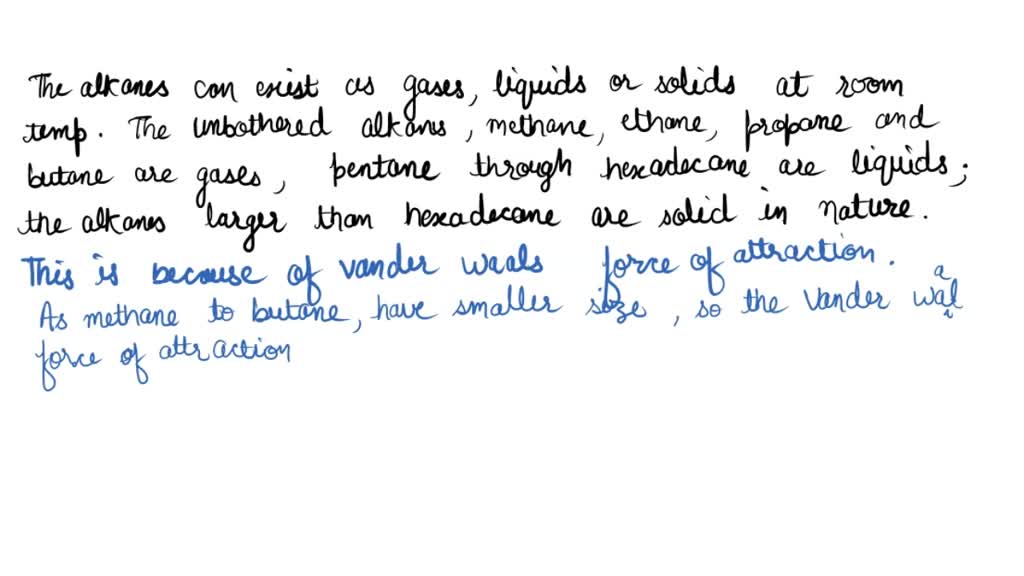 The alkanes can exist as gases, liquids or solids at room
temp. The unbothered alkanes, methane, ethane, propane and
butane are gases, pentane through hexadecane are liquids;
the alkanes larger than hexadecane are solid in nature.
This is because of vander waals force of attraction.
As methane to butane, have smaller size, so the vander waal
force of attraction